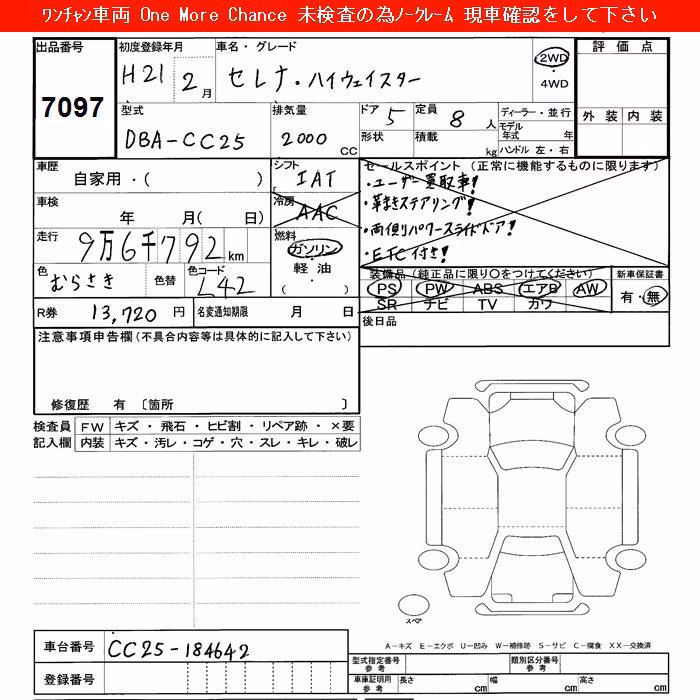 ﾜﾝﾁｬﾝ車両 One More Chance 未検査の為ﾉｰｸﾚｰﾑ 現車確認をして下さい
出品番号 初度登録年月 車名・グレード 2WD 評価点
7097 H21 2月 セレナ・ハイウェイスター 4WD
型式 排気量 ドア 5 定員 8人 ディーラー・並行 外装 内装
DBA-CC25 2000 CC 形状 積載 kg モデル年式 年
ハンドル 左・右
車歴 シフト IAT セールスポイント (正常に機能するものに限ります)
自家用・( ) ・ユーザー買取車!
車検 冷房 AAC ・革まきステアリング!
年 月( 日) ・両側パワースライドドア!
走行 9万6千792km 燃料 ガソリン・軽油・( ) ・ETC付き!
色 むらさき 色替 色コード L42 装備品 (純正品に限り○をつけてください) 新車保証書
PS PW ABS エアB AW 有・無
SR ナビ TV カワ
R券 13,720円 名変通知期限 月 日 後日品
注意事項申告欄(不具合内容等は具体的に記入して下さい)
修復歴 有 〔箇所 〕
検査員 FW キズ・飛石・ヒビ割・リペア跡・×要
記入欄 内装 キズ・汚レ・コゲ・穴・スレ・キレ・破レ
スペア
A-キズ E-エクボ U-凹み W-補修跡 S-サビ C-腐食 XX-交換済
車台番号 CC25-184642 型式指定番号 参考 類別区分番号 参考
登録番号 車庫証明用 参考 長さ cm 幅 cm 高さ cm